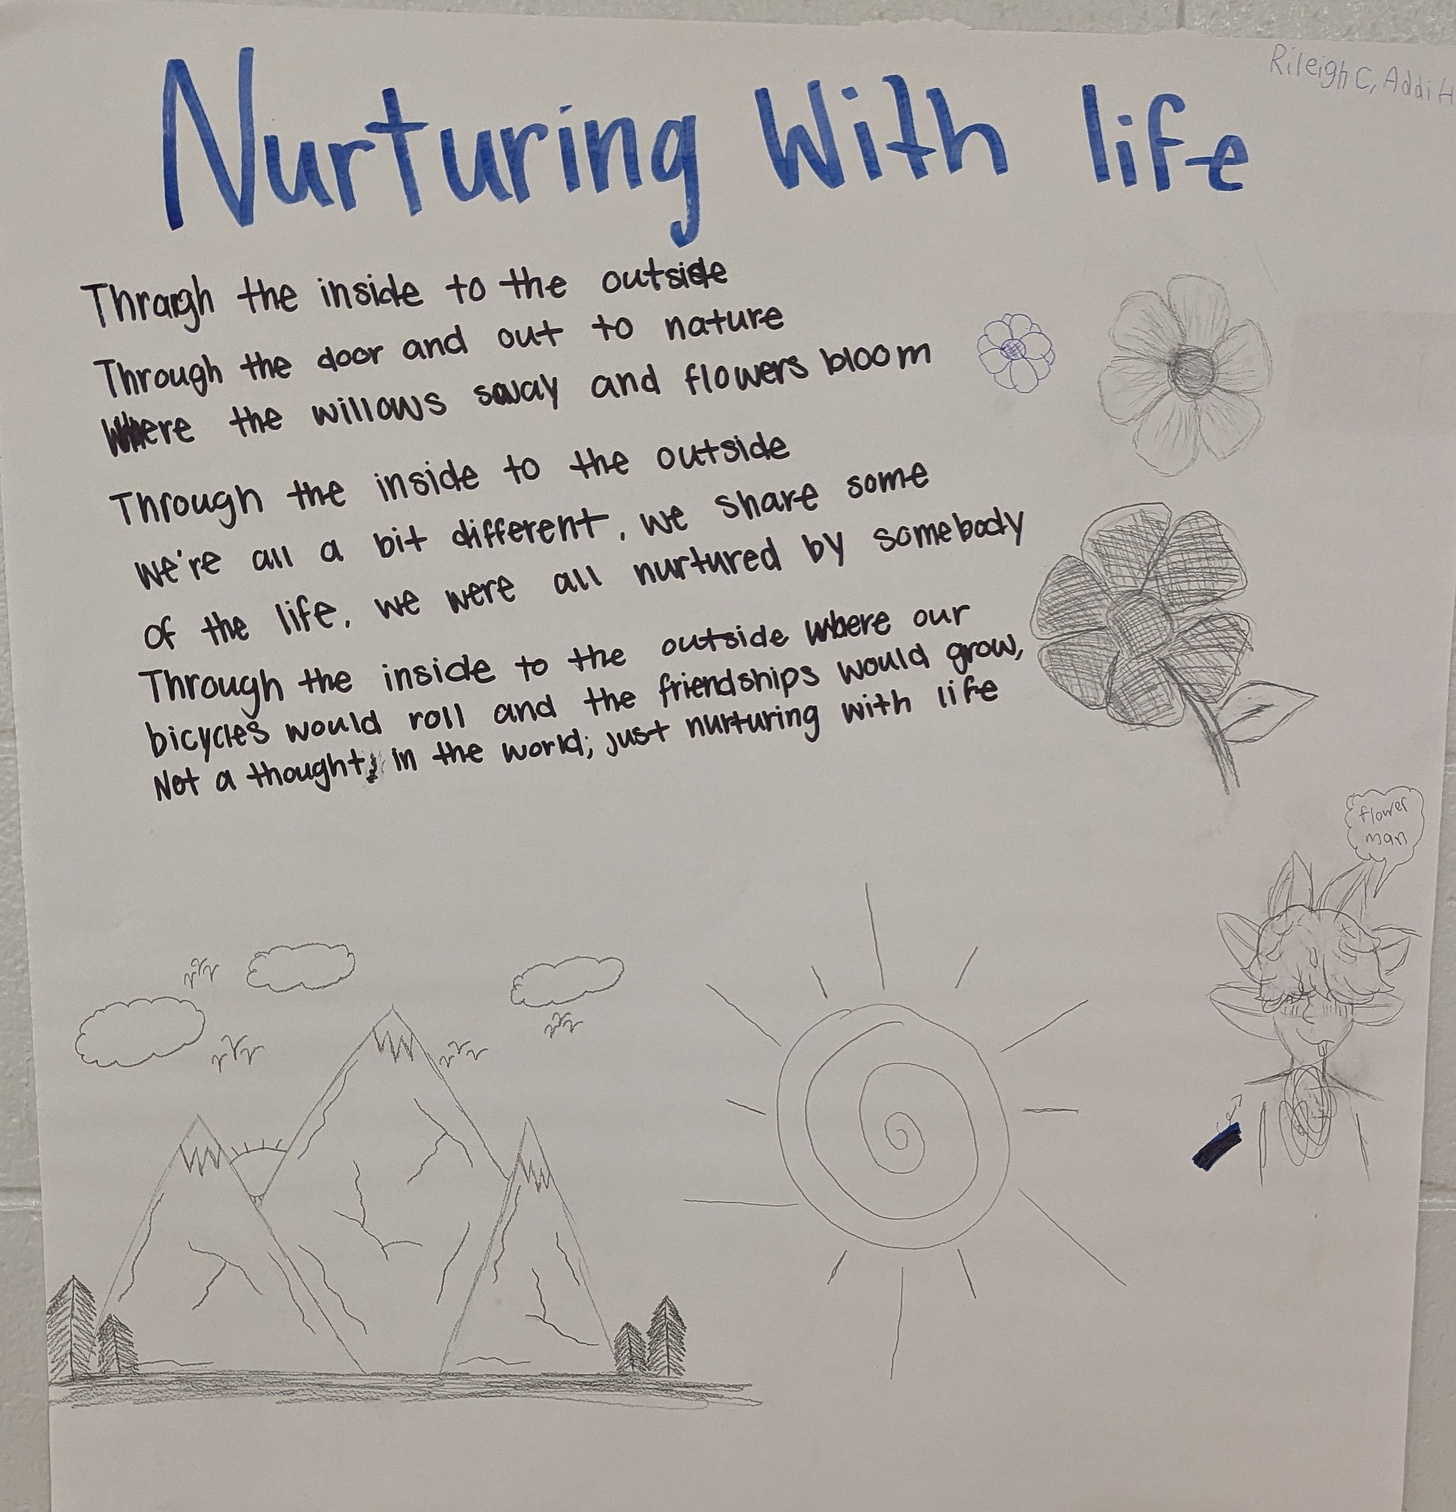 Rileigh C, Addi H
Nurturing With life
Through the inside to the outside
Through the door and out to nature
Where the willows sway and flowers bloom
Through the inside to the outside
we're all a bit different, we share some
of the life, we were all nurtured by somebody
Through the inside to the outside where our
bicycles would roll and the friendships would grow,
Not a thought, in the world; just nurturing with life
flower
man